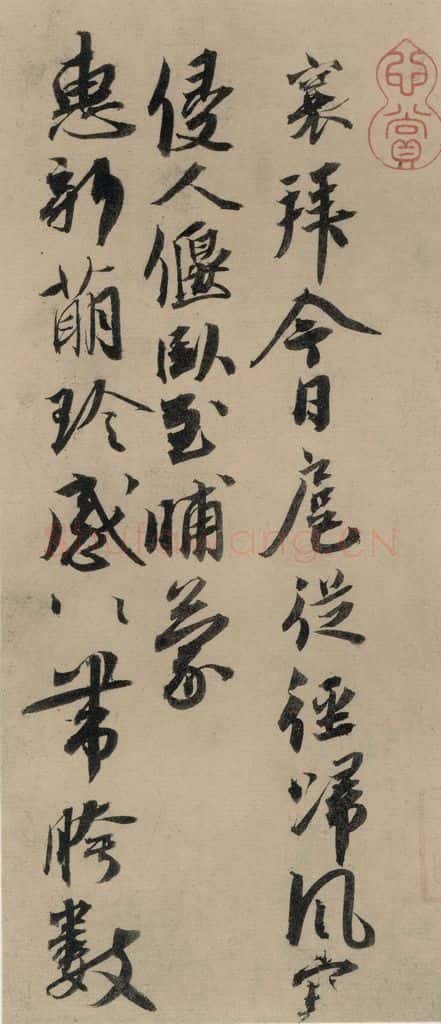 心賞
襄拜今日扈從徑歸風寒
侵人偃臥至晡蒙
惠新萌珍感〻〻帶胯數